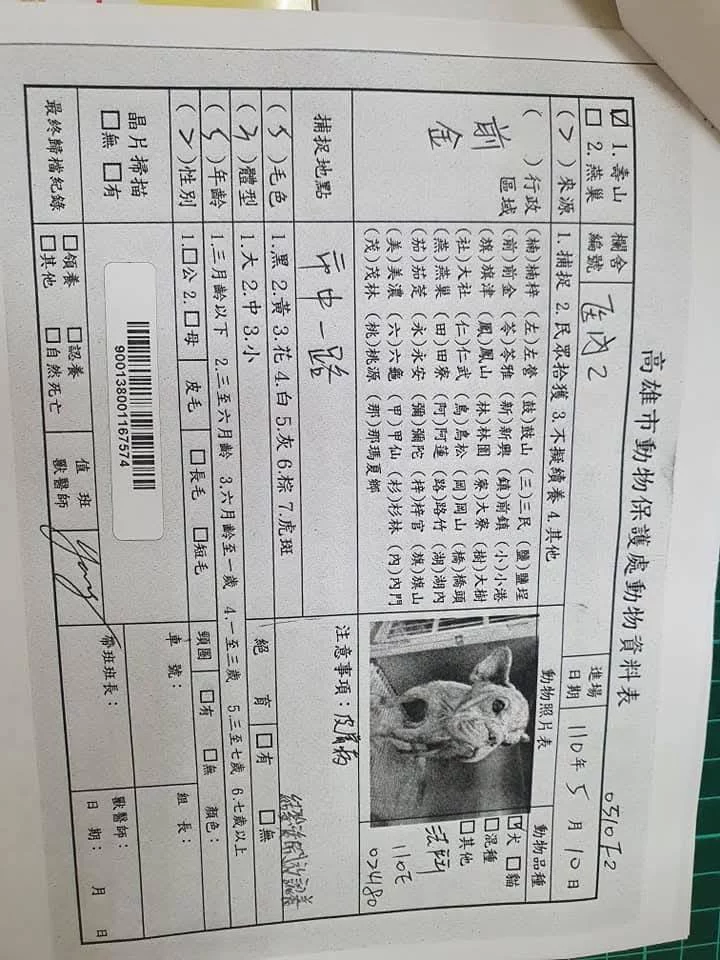 高雄市動物保護處動物資料表
0510F2
☑ 1. 壽山
☐ 2. 燕巢
欄舍
編號
區內2
進場
日期
110年5月10日
(>)來源
1.捕捉 2.民眾拾獲 3.不擬續養 4.其他
動物照片表
動物品種
( )行政
區域
前金
(楠)楠梓 (左)左營 (鼓)鼓山 (三)三民 (鹽)鹽埕
(前)前金 (苓)苓雅 (新)新興 (鎮)前鎮 (小)小港
(旗)旗津 (鳳)鳳山 (林)林園 (寮)大寮 (樹)大樹
(社)大社 (仁)仁武 (鳥)鳥松 (岡)岡山 (橋)橋頭
(燕)燕巢 (田)田寮 (阿)阿蓮 (路)路竹 (湖)湖內
(茄)茄萣 (永)永安 (彌)彌陀 (梓)梓官 (旗)旗山
(美)美濃 (六)六龜 (甲)甲仙 (杉)杉林 (內)內門
(茂)茂林 (桃)桃源 (那)那瑪夏鄉
☑犬 ☐貓
☐混種
☐其他
法鬥
110E
024180
捕捉地點
市中一路
注意事項：皮膚病
(5)毛色
1.黑 2.黃 3.花 4.白 5.灰 6.棕 7.虎斑
絕育
☐有 ☐無
(3)體型
1.大 2.中 3.小
(5)年齡
1.三月齡以下 2.三至六月齡 3.六月齡至一歲 4.一至三歲 5.三至七歲 6.七歲以上
(>)性別
1.☐公 2.☐母
皮毛
☐長毛 ☐短毛
頸圈
☐有 ☐無 顏色：
晶片掃描
☐無 ☐有
900138001167574
車號：
組長：
最終歸檔紀錄
☐領養 ☐認養
☐其他 ☐自然死亡
值班
獸醫師
帶班班長：
獸醫師：
日期： 月 日